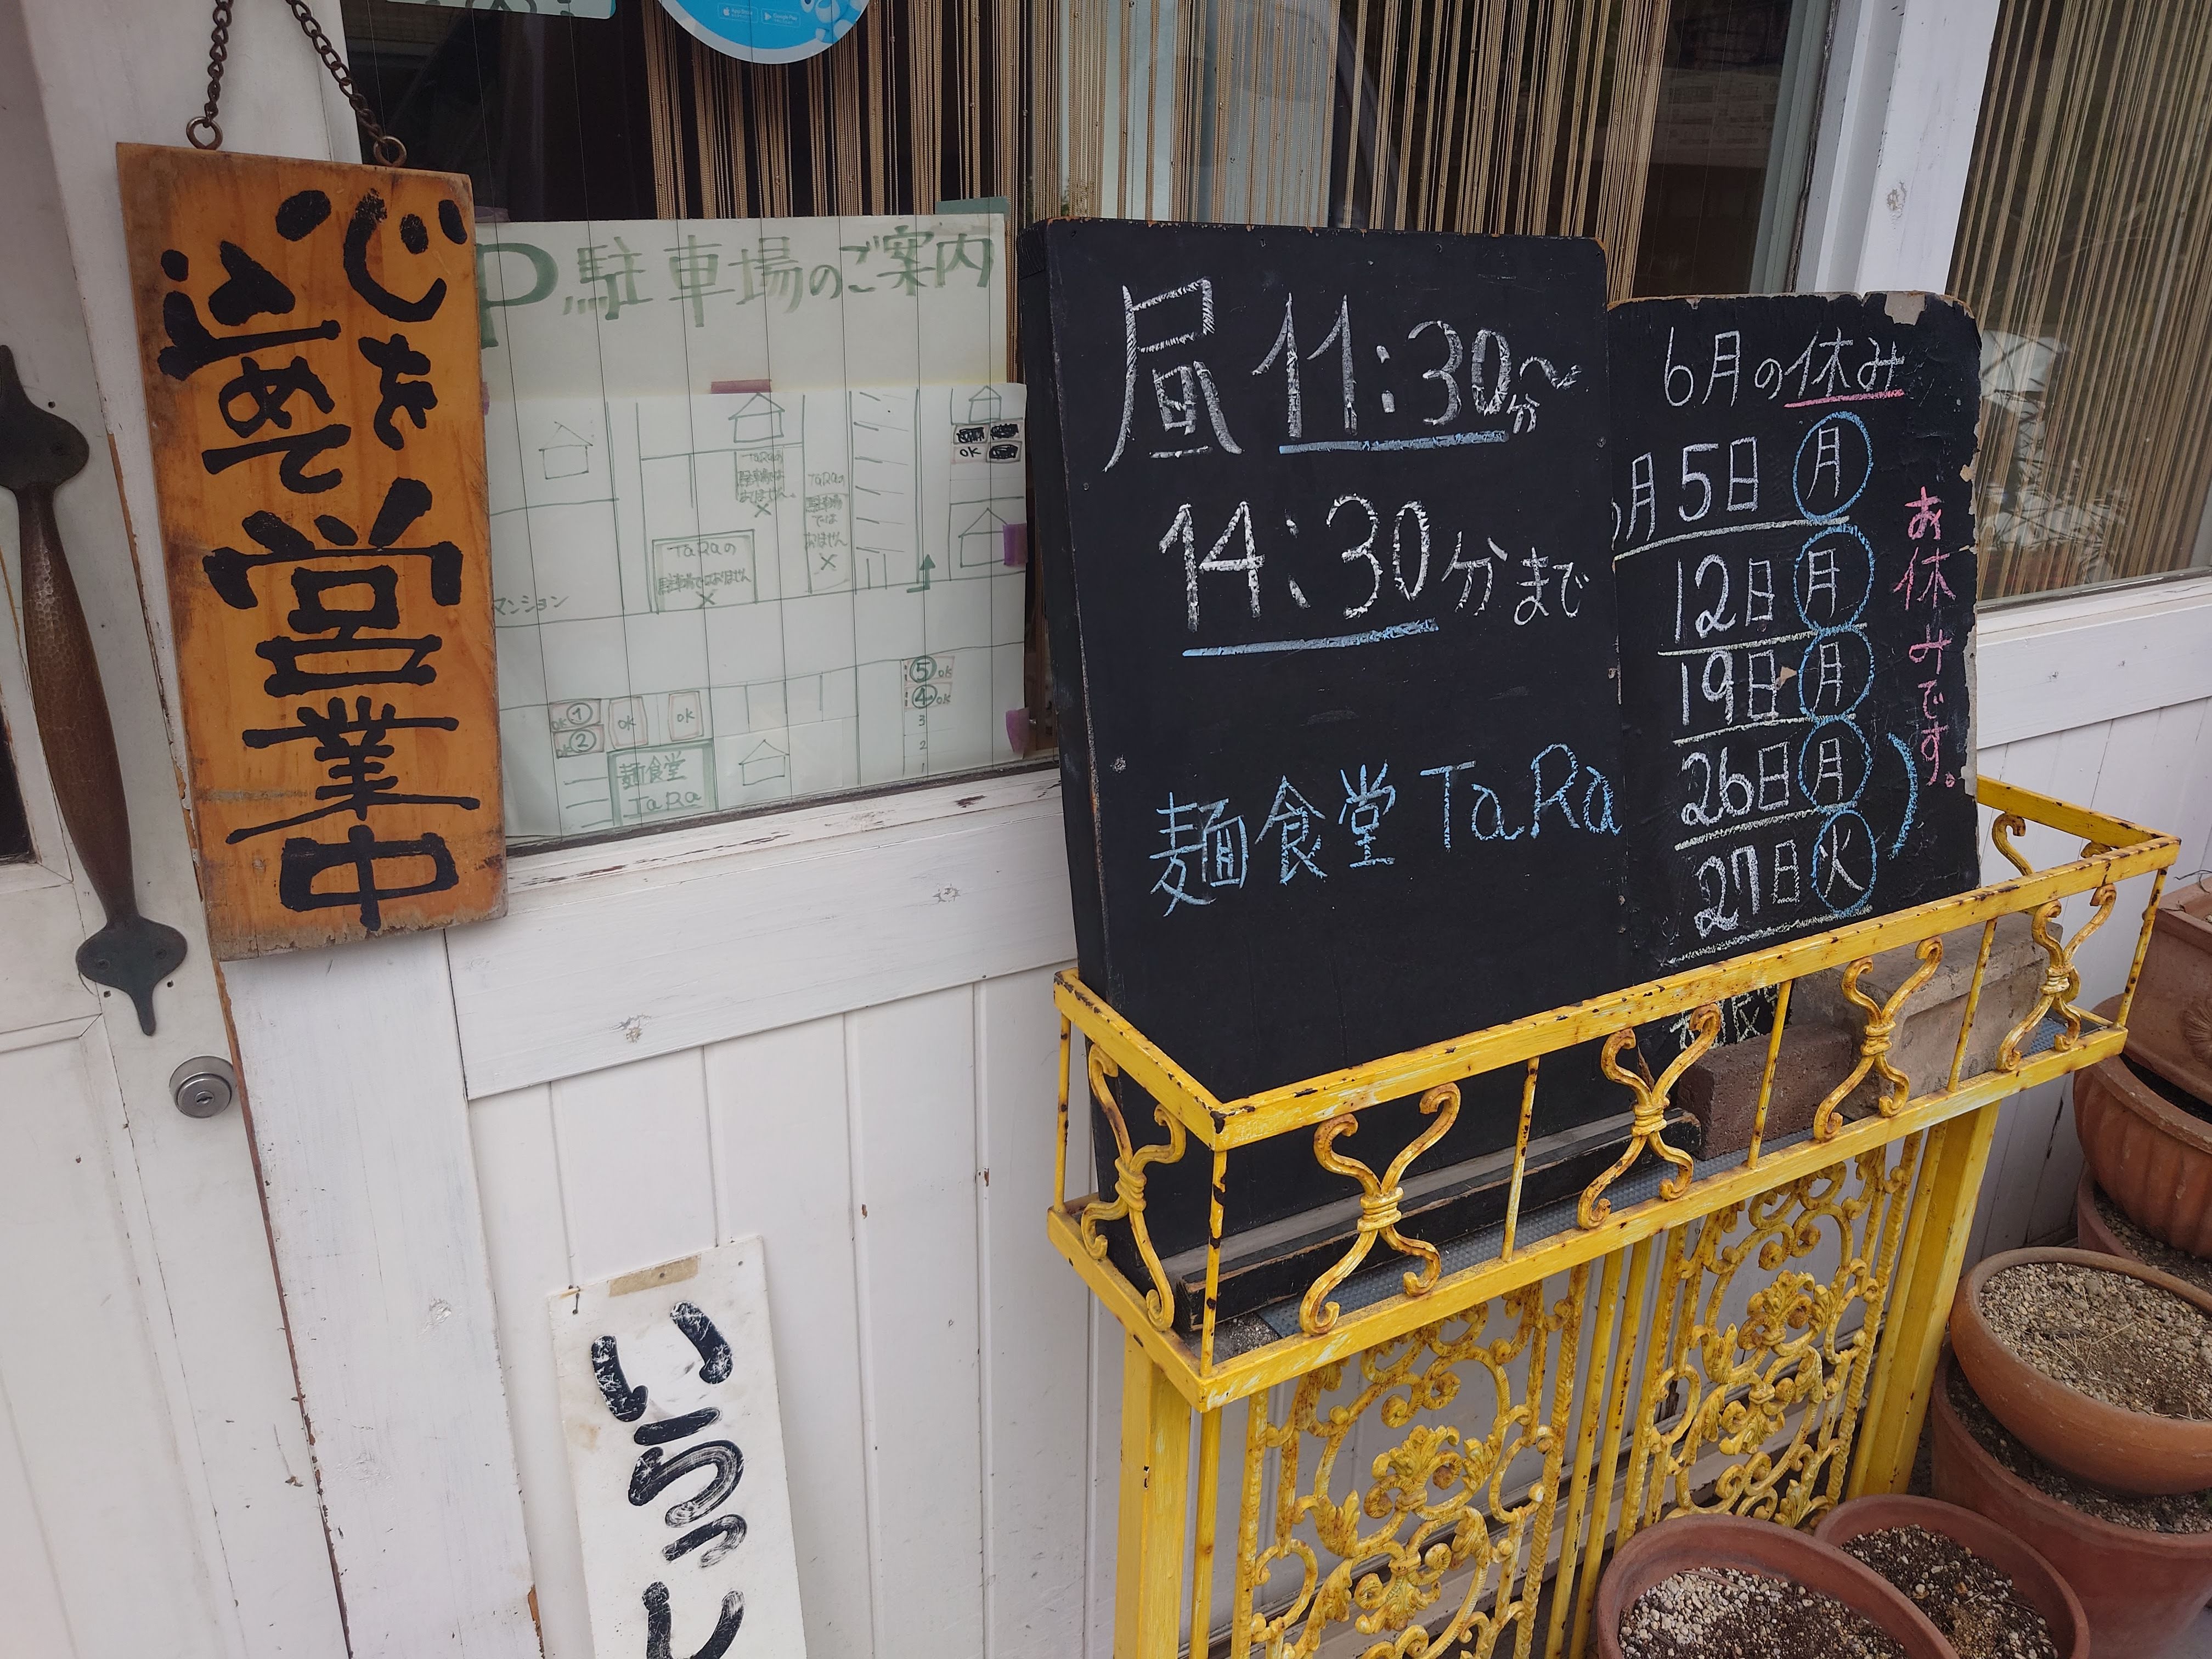 心を
込めて
営業中
P駐車場のご案内
TaRaの
駐車場では
ありません
×
TaRaの
駐車場
では
ありません
×
TaRaの
駐車場ではありません
×
OK
マンション
OK ①
OK ②
OK
OK
⑤ OK
④ OK
3
2
1
麺食堂
TaRa
昼 11:30分〜
14:30分まで
麺食堂 TaRa
6月の休み
月5日 月
12日 月
19日 月
26日 月
27日 火
お休みです。
いらっし